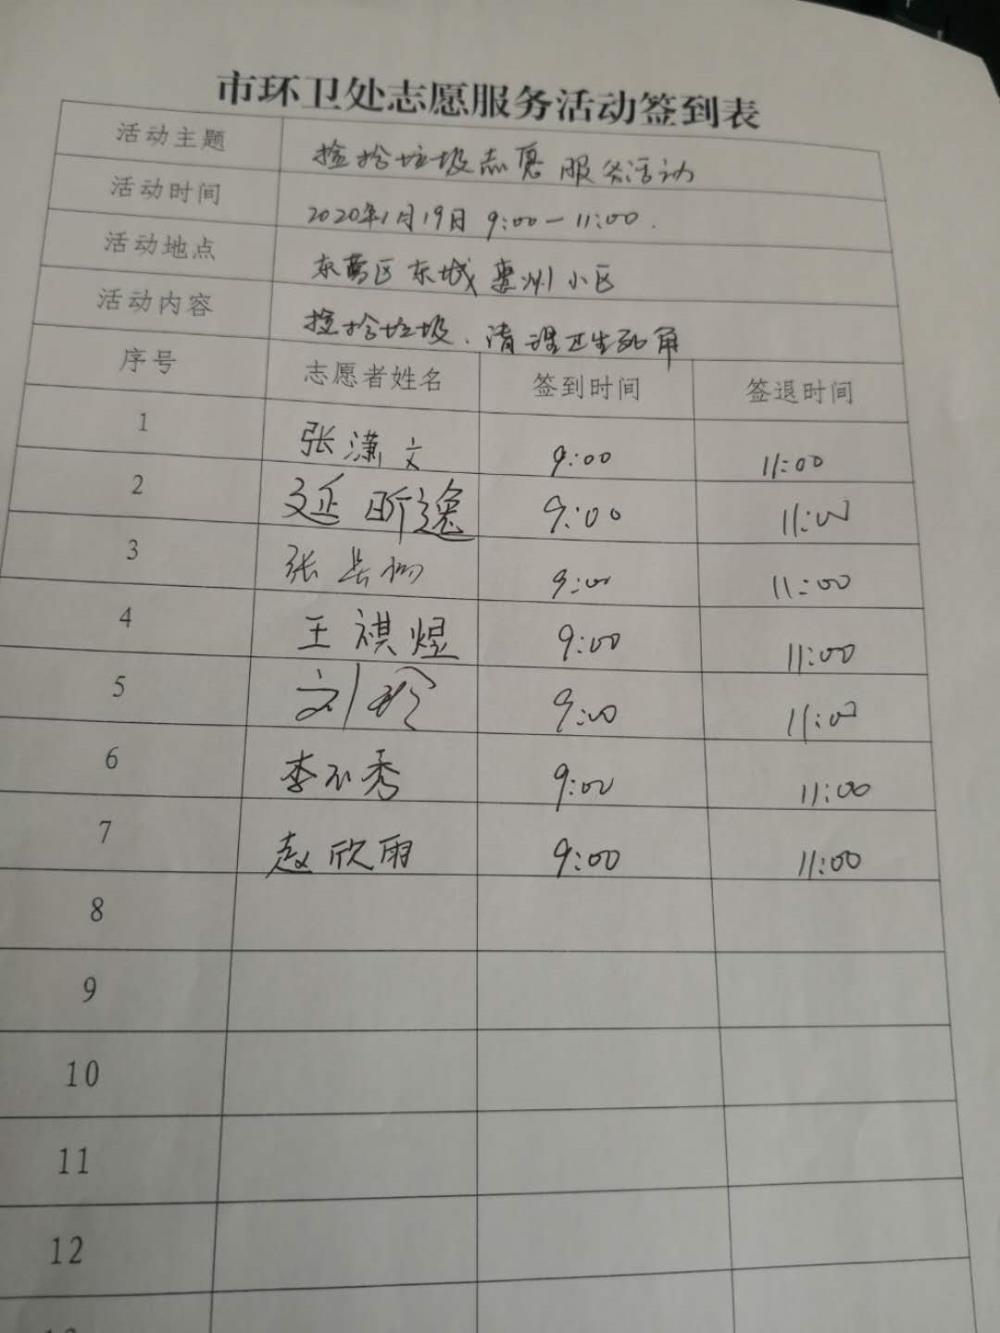 市环卫处志愿服务活动签到表
活动主题 捡拾垃圾志愿服务活动
活动时间 2020年1月19日 9:00—11:00.
活动地点 东营区东城 小区
活动内容 捡拾垃圾、清理卫生死角
序号 志愿者姓名 签到时间 签退时间
1 张潇文 9:00 11:00
2 延昕逸 9:00 11:00
3 张 9:00 11:00
4 王祺煜 9:00 11:00
5 刘玲 9:00 11:00
6 李 秀 9:00 11:00
7 赵欣雨 9:00 11:00
8
9
10
11
12